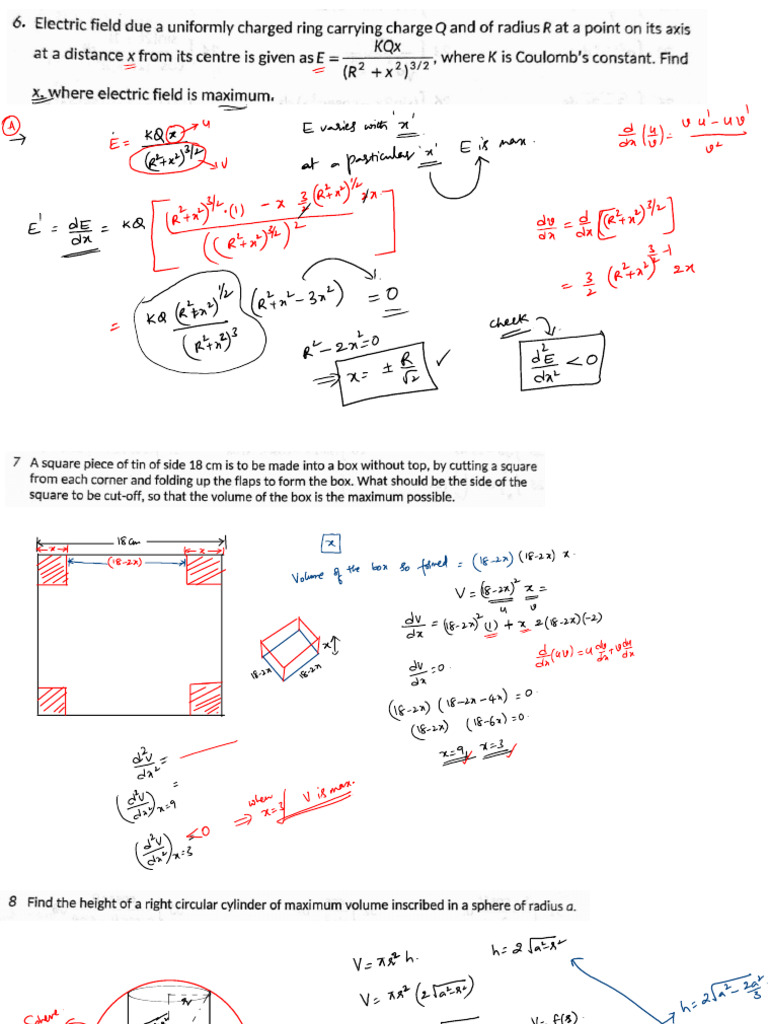 6. Electric field due a uniformly charged ring carrying charge Q and of radius R at a point on its axis
at a distance x from its centre is given as E = KQx / (R² + x²)^3/2, where K is Coulomb's constant. Find
x, where electric field is maximum.
A
E = KQ(x) / (R²+x²)^3/2
u
v
E varies with 'x'
at a particular 'x' E is max.
d/dx (u/v) = (v u' - u v') / v²
E' = dE/dx = KQ [ ((R²+x²)^3/2 · (1) - x 3/2 (R²+x²)^1/2 2x) / ((R²+x²)^3/2)² ]
dv/dx = d/dx [(R²+x²)^3/2]
= 3/2 (R²+x²)^(3/2 - 1) 2x
= KQ (R²+x²)^1/2 / (R²+x²)³ (R²+x² - 3x²) = 0
R² - 2x² = 0
⇒ x = ± R/√2 ✓
check
d²E/dx² < 0
7 A square piece of tin of side 18 cm is to be made into a box without top, by cutting a square
from each corner and folding up the flaps to form the box. What should be the side of the
square to be cut-off, so that the volume of the box is the maximum possible.
18 cm
x
(18-2x)
x
x
Volume of the box so formed = (18-2x) (18-2x) x.
V = (18-2x)² x =
u v
dv/dx = (18-2x)² (1) + x 2(18-2x)(-2)
d/dx (uv) = u dv/dx + v du/dx
x
18-2x
18-2x
dv/dx = 0.
(18-2x) (18-2x-4x) = 0
(18-2x) (18-6x) = 0.
x=9, x=3
d²V/dx² =
=
(d²V/dx²) x=9
(d²V/dx²) x=3 <0 ⇒ when x=3 V is max.
8 Find the height of a right circular cylinder of maximum volume inscribed in a sphere of radius a.
V = πr² h.
h = 2√a²-r²
V = πr² (2√a²-r²)
h = 2√a² - 2a²/3
Sphere
r
V = f(r)